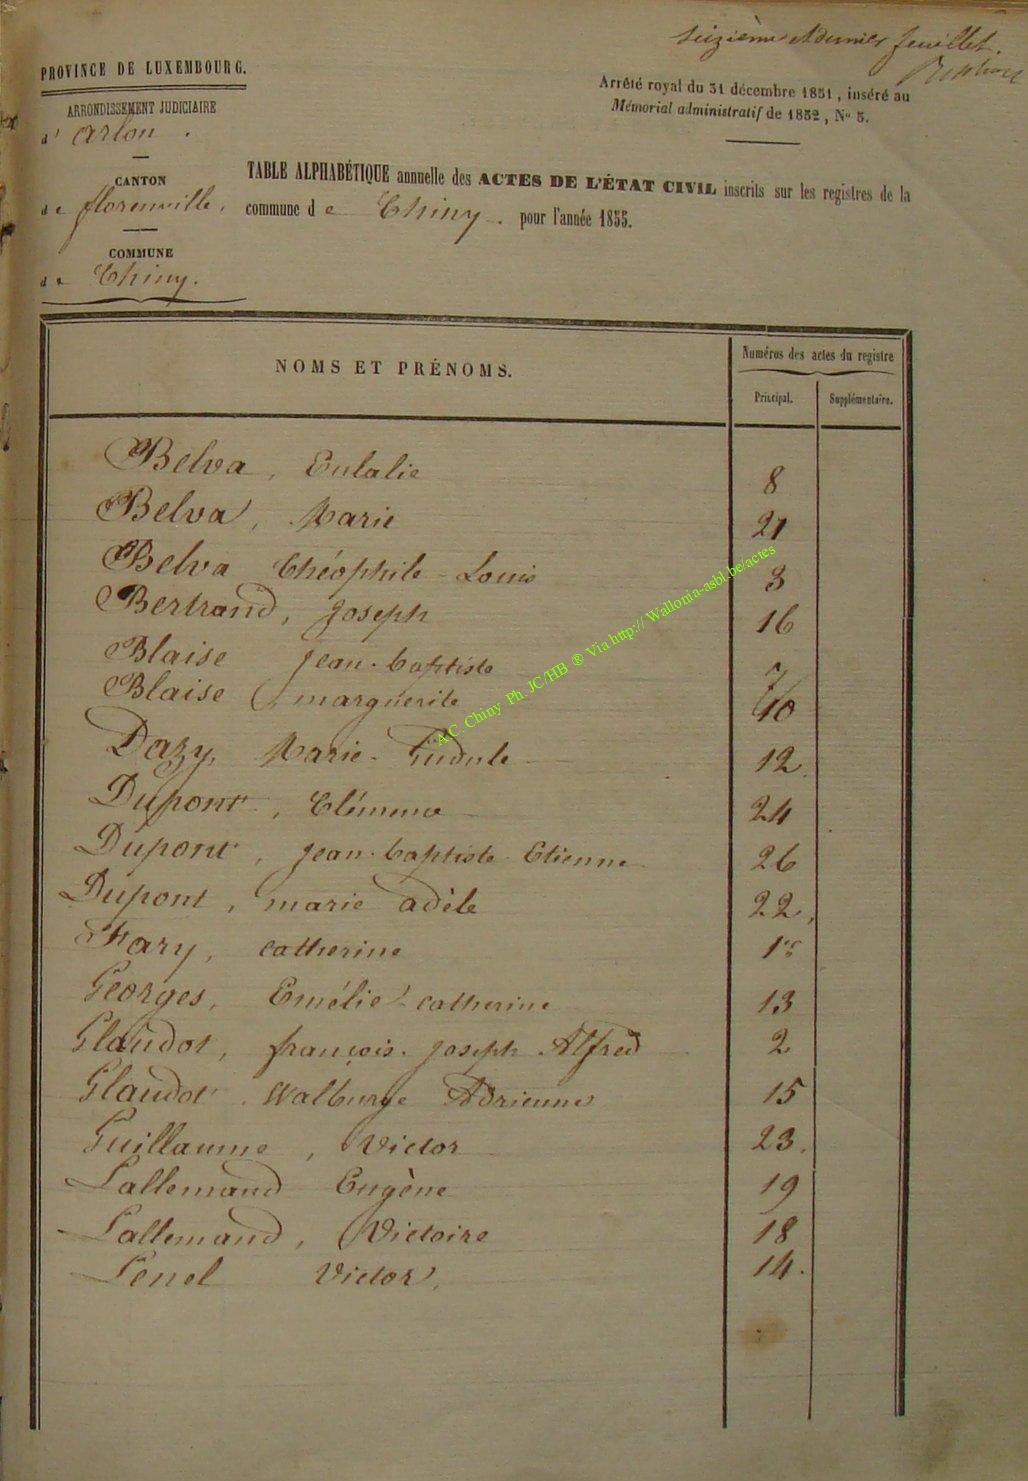 seizième et dernier feuillet.
PROVINCE DE LUXEMBOURG.
ARRONDISSEMENT JUDICIAIRE
d' Arlon.
CANTON
de florenville,
COMMUNE
de Chiny.
Arrêté royal du 31 décembre 1851, inséré au
Mémorial administratif de 1852, No 5.
TABLE ALPHABÉTIQUE annuelle des ACTES DE L'ÉTAT CIVIL inscrits sur les registres de la
commune de Chiny. pour l'année 1855.
NOMS ET PRÉNOMS.
Numéros des actes du registre
Principal. Supplémentaire.
Belva, Eulalie 8
Belva, Marie 21
Belva Théophile-Louis 3
Bertrand, Joseph 16
Blaise Jean-baptiste 7
Blaise, marguerite 10
Dazy, Marie-Gudule 12
Dupont, Clémence 24
Dupont, Jean-baptiste-Etienne 26
Dupont, marie adèle 22,
Fary, catherine 1er
Georges, Emélie-catherine 13
Glaudot, françois-joseph-Alfred 2
Glaudot. Walburge Adrienne 15
Guillaume, Victor 23.
Lallemand Eugène 19
Lallemand, Victoire 18
Lenel Victor, 14.
A.C. Chiny Ph. JC/HB ® Via http:// Wallonia-asbl.be/actes